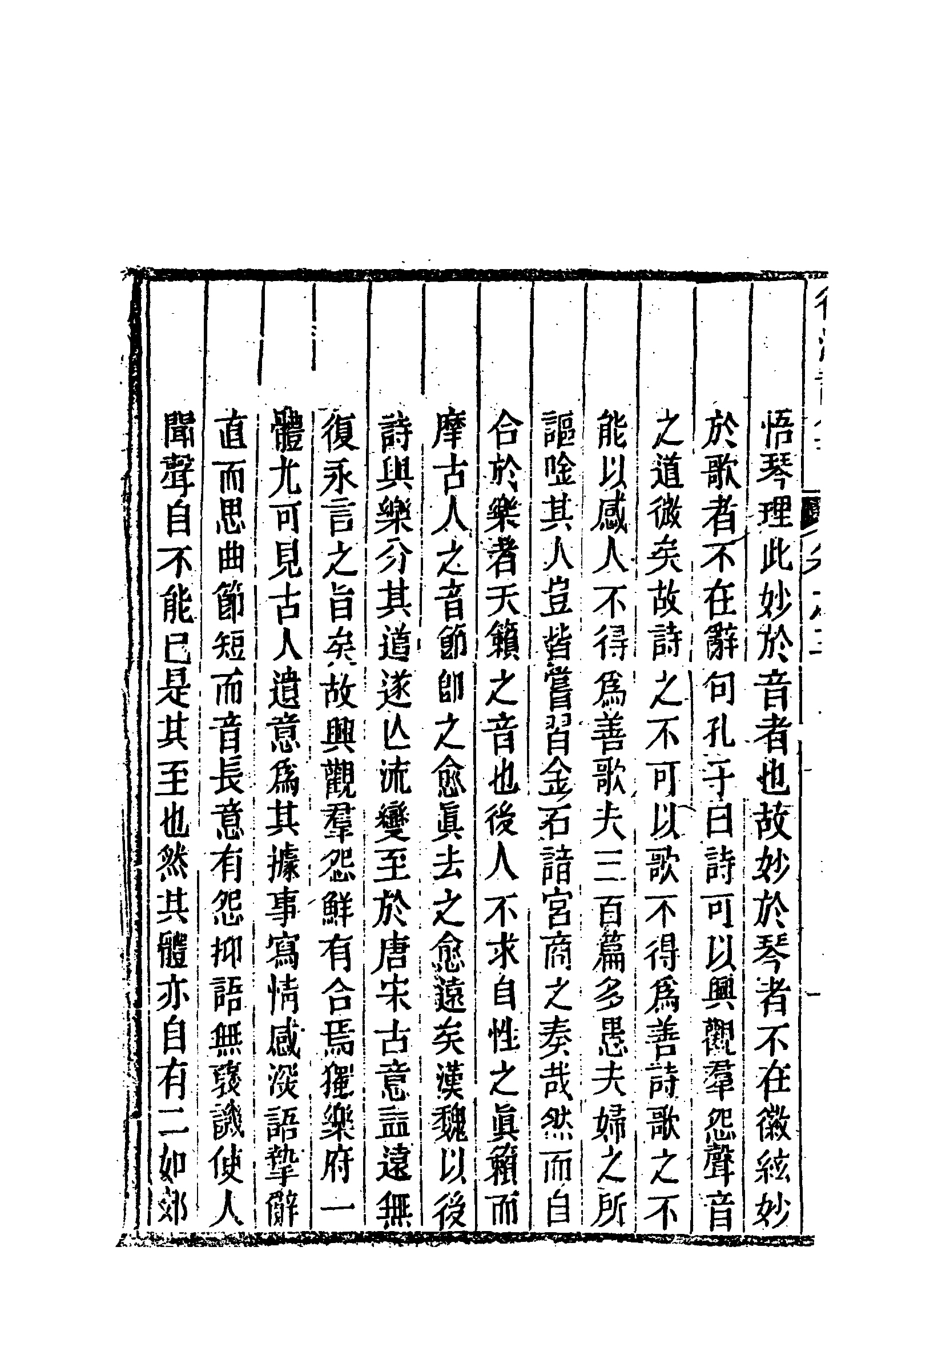 悟琴理此妙於音者也故妙於琴者不在徽絃妙
於歌者不在辭句孔子曰詩可以興觀羣怨聲音
之道微矣故詩之不可以歌不得爲善詩歌之不
能以感人不得爲善歌夫三百篇多愚夫婦之所
謳唫其人豈皆嘗習金石諳宮商之奏哉然而自
合於樂者天籟之音也後人不求自性之眞籟而
摩古人之音節卽之愈眞去之愈遠矣漢魏以後
詩與樂分其道遂亾流變至於唐宋古意益遠無
復永言之旨矣故興觀羣怨鮮有合焉獨樂府一
體尤可見古人遺意爲其據事寫情感深語摯辭
直而思曲節短而音長意有怨抑語無襃譏使人
聞聲自不能已是其至也然其體亦自有二如郊